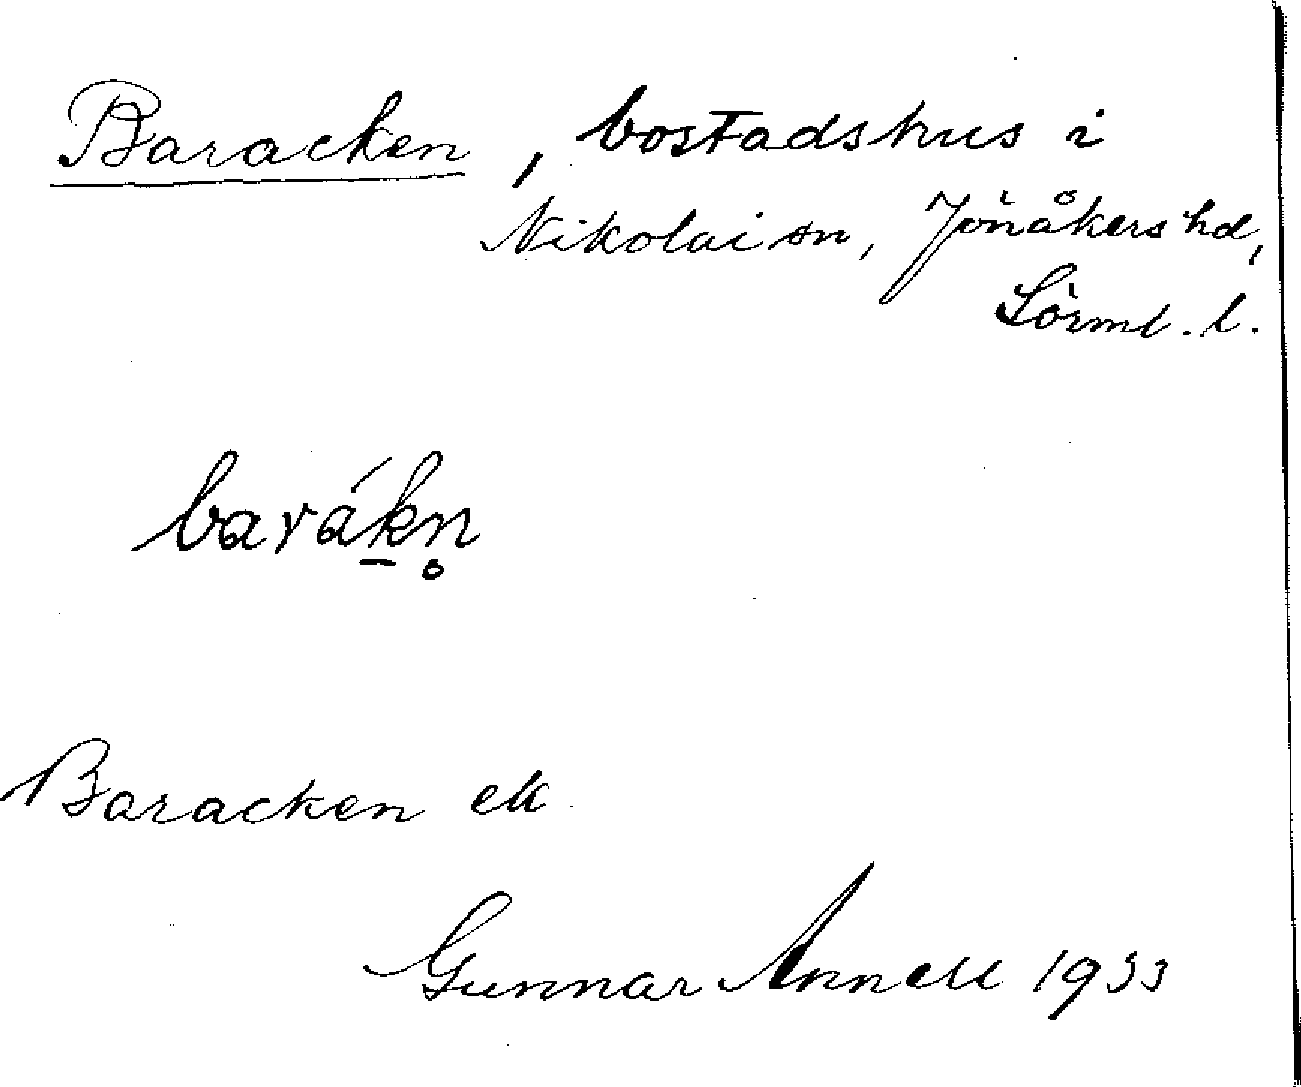 Baracken, bostadshus i
Nikolai sn, Jönåkers hd,
Sörml. l.
barákn̥
Baracken ek
Gunnar Annell 1933